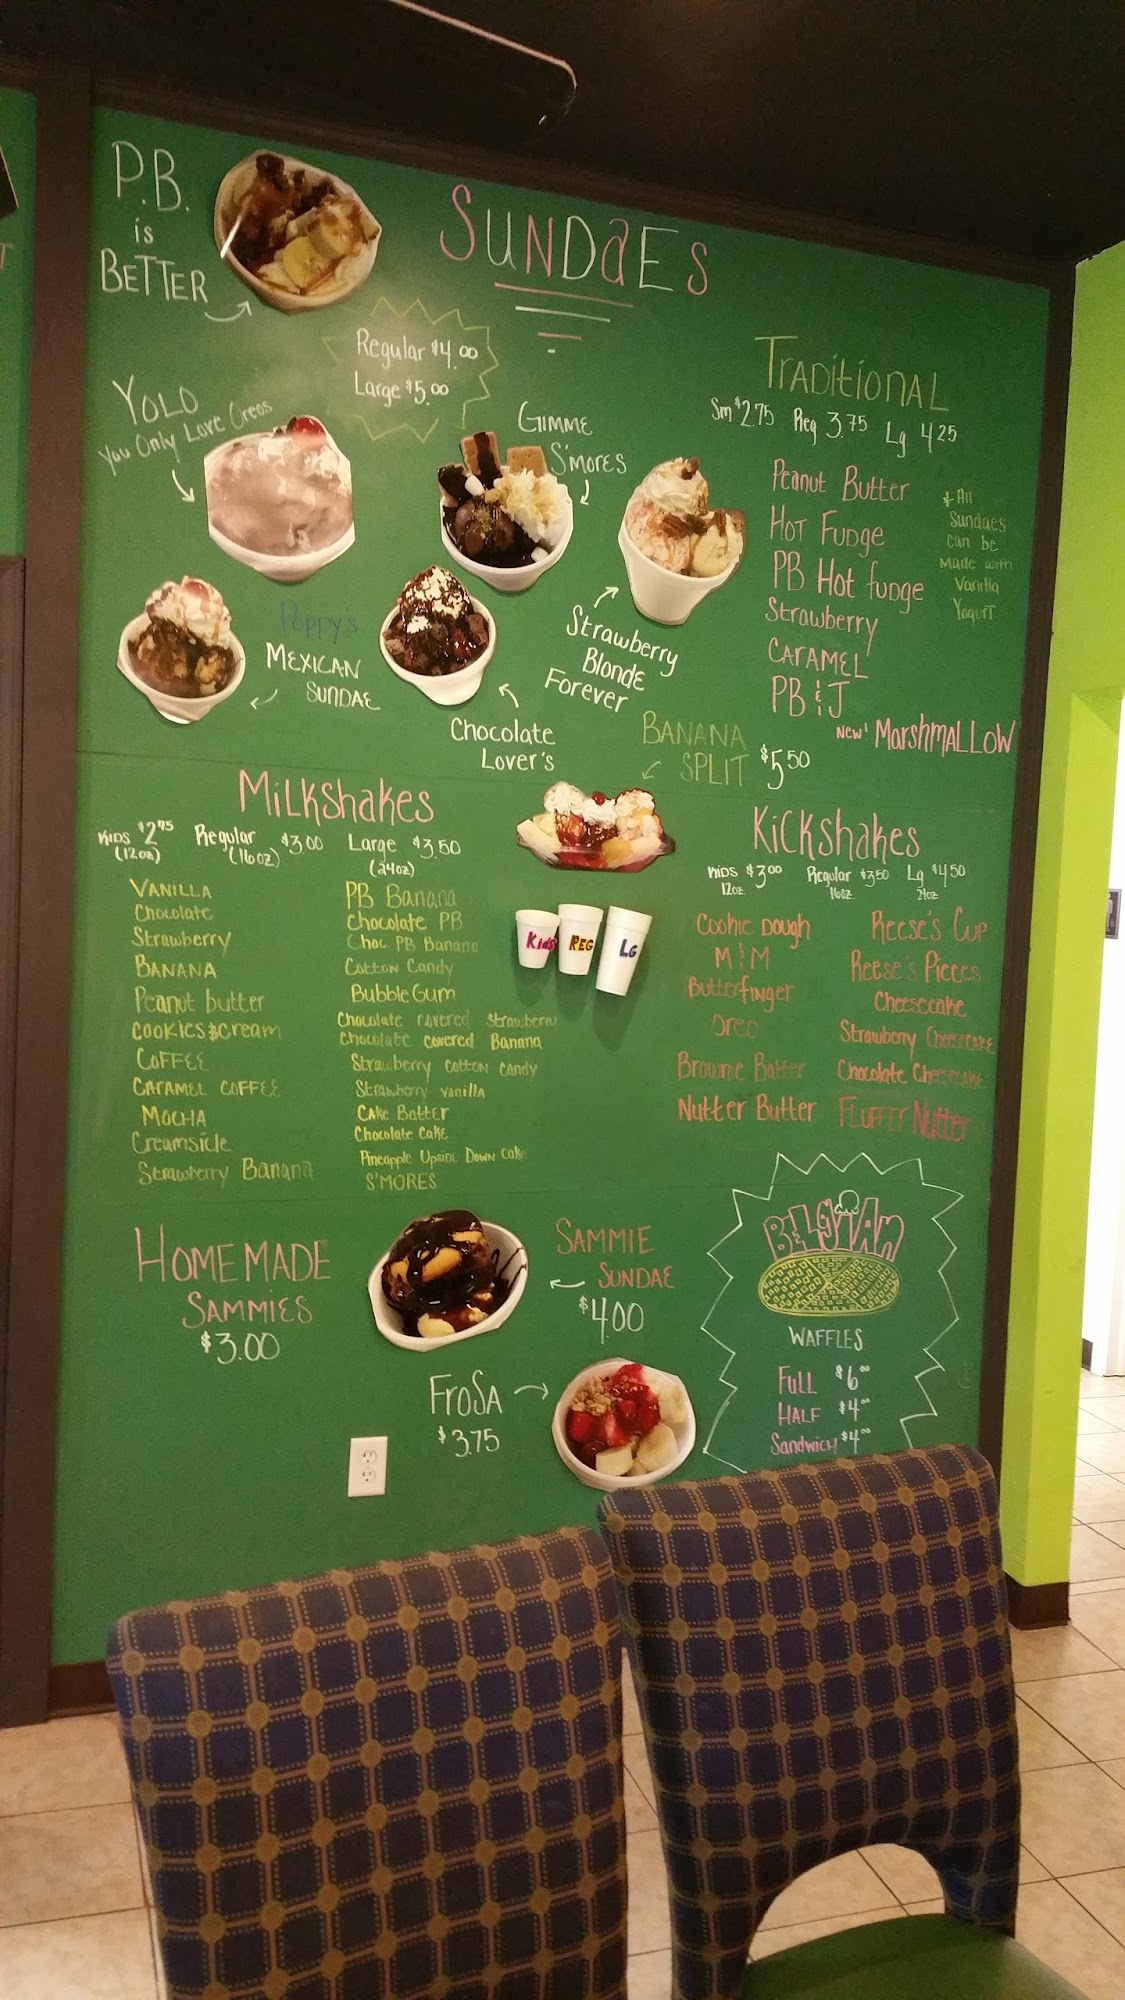 P.B.
is
BETTER
SUNDAES
Regular $4.00
Large $5.00
YOLO
You Only Love Oreos
GIMME
S'MORES
Poppy's
MEXICAN
SUNDAE
Chocolate
Lover's
Strawberry
Blonde
Forever
BANANA
SPLIT $5.50
TRADITIONAL
Sm $2.75 Reg 3.75 Lg 4.25
Peanut Butter
HOT FUDGE
PB Hot fudge
Strawberry
CARAMEL
PB & J
New! MarshMALLOW
* All
Sundaes
can be
Made with
Vanilla
Yogurt
Milkshakes
KIDS $2.75 Regular $3.00 Large $3.50
(12oz) (16oz) (24oz)
VANILLA
Chocolate
Strawberry
BANANA
Peanut butter
cookies & cream
COFFEE
CARAMEL COFFEE
MOCHA
Creamsicle
Strawberry Banana
PB Banana
Chocolate PB
Choc. PB Banana
Cotton Candy
Bubble Gum
Chocolate covered Strawberry
Chocolate covered Banana
Strawberry cotton candy
Strawberry vanilla
Cake Batter
Chocolate Cake
Pineapple Upside Down Cake
S'MORES
Kids REG LG
Kickshakes
KIDS $3.00 Regular $3.50 Lg $4.50
12oz. 16oz. 24oz
Cookie Dough
M & M
Butterfinger
Oreo
Brownie Batter
Nutter Butter
Reese's Cup
Reese's Pieces
Cheesecake
Strawberry Cheesecake
Chocolate Cheesecake
FLUFFER Nutter
HOMEMADE
SAMMIES
$3.00
SAMMIE
SUNDAE
$4.00
FROSA
$3.75
BELGiAN
WAFFLES
FULL $6.00
HALF $4.00
Sandwich $4.00